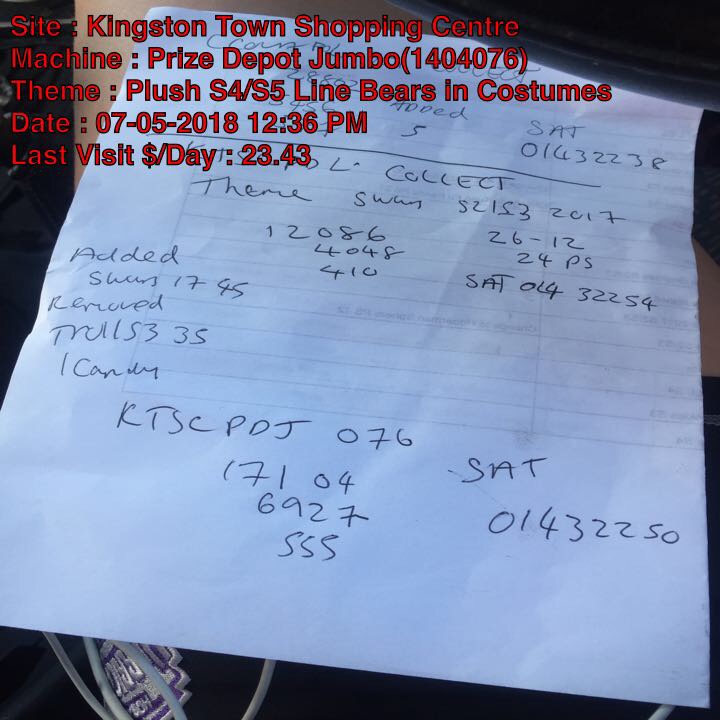 Site : Kingston Town Shopping Centre
Machine : Prize Depot Jumbo(1404076)
Theme : Plush S4/S5 Line Bears in Costumes
Date : 07-05-2018 12:36 PM
Last Visit $/Day : 23.43
Added
5
SAT
01432238
COLLECT
Theme Swan S2/S3 2017
12086 26-12
4048 24 PS
410 SAT 014 32254
Added
Swan 17 45
Removed
Troll S3 35
1 Candy
KTSC PDJ 076
171 04 SAT
6927 01432250
555